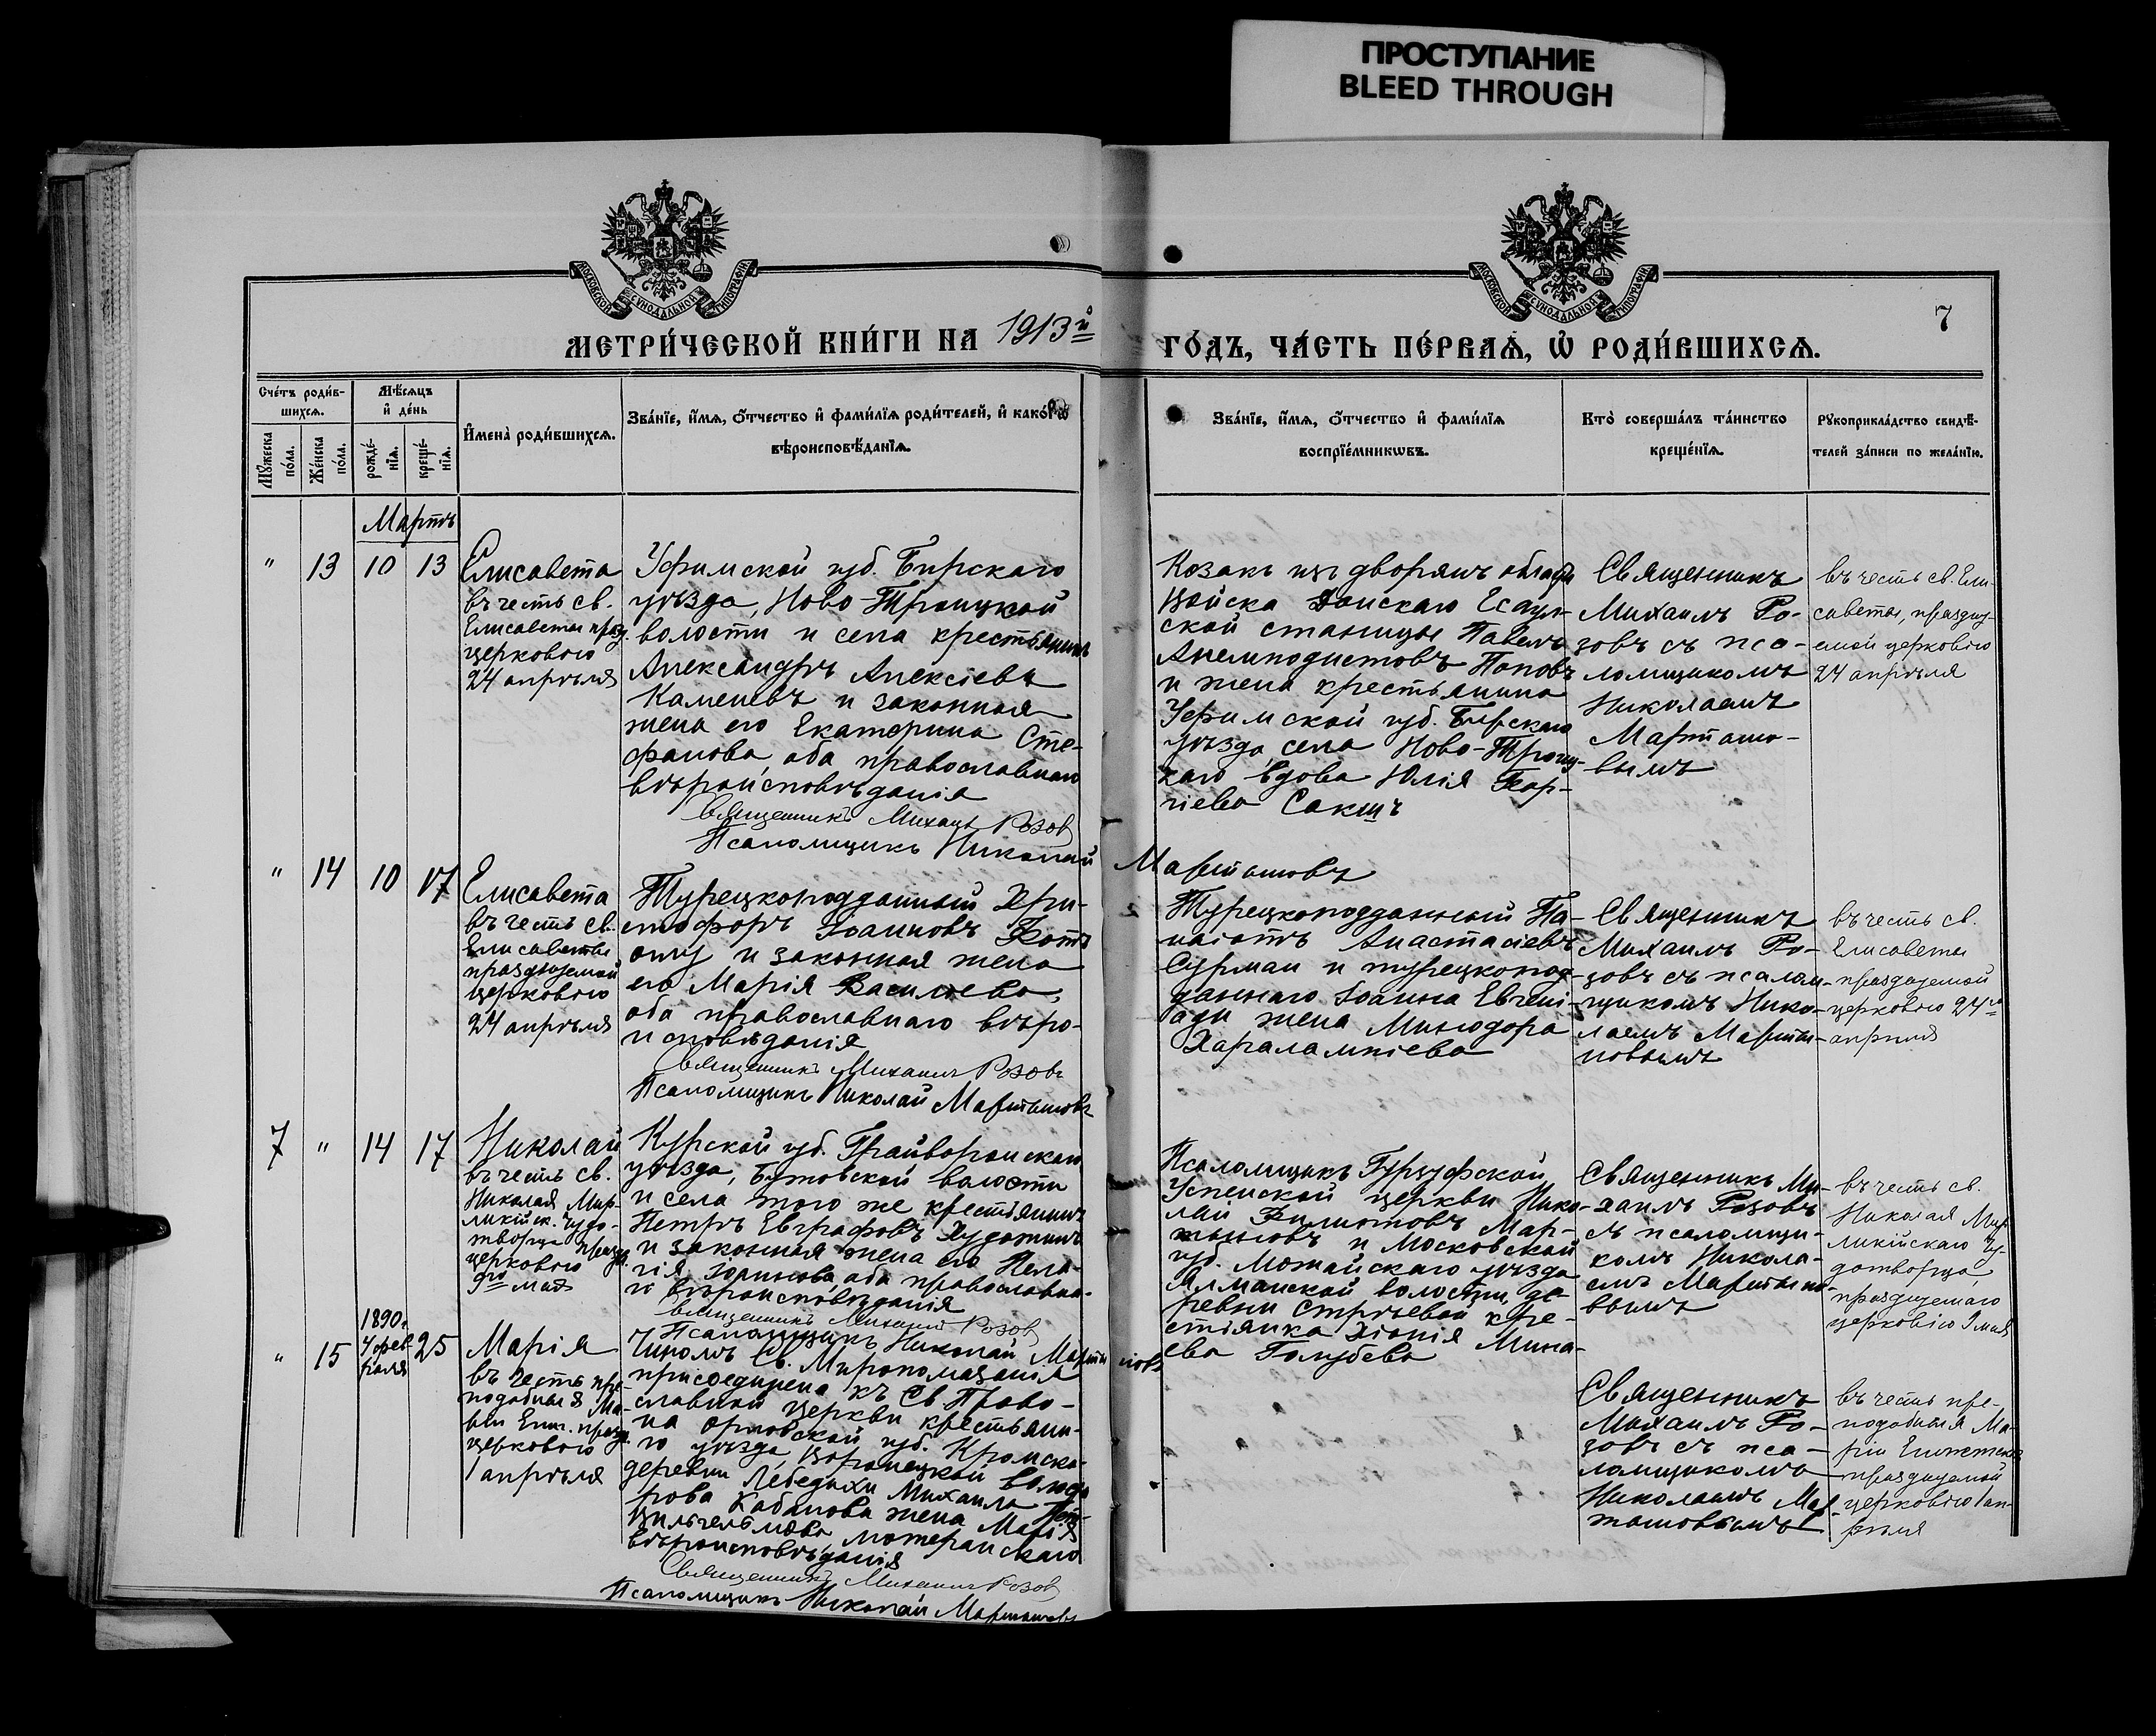 ПРОСТУПАНИЕ
BLEED THROUGH
МОСКОВСКОЙ СУНОДАЛЬНОЙ ТИПОГРАФІИ
МОСКОВСКОЙ СУНОДАЛЬНОЙ ТИПОГРАФІИ
7
МЕТРИ́ЧЕСКОЙ КНИ́ГИ НА 1913й
ГО́ДЪ, ЧА́СТЬ ПЕ́РВАѦ, Ѡ҆ РОДИ́ВШИХСѦ.
Сче́тъ роди́в-
шихсѧ.
Мѣ́сѧцъ
и҆ де́нь
Мꙋ́жеска
по́ла.
Же́нска
по́ла.
рожде́-
нїѧ.
креще́-
нїѧ.
И҆мена̀ роди́вшихсѧ.
Зва́нїе, и҆́мѧ, ѻ҆́тчество и҆ фами́лїѧ роди́телей, и҆ како́гѡ
вѣроисповѣ́данїѧ.
Зва́нїе, и҆́мѧ, ѻ҆́тчество и҆ фами́лїѧ
воспрїе́мникѡвъ.
Кто̀ соверша́лъ та́инство
креще́нїѧ.
Рꙋкоприкла́дство свидѣ́-
телей за́писи по жела́нїю.
Мартъ
" 13 10 13
Елисавета
въ честь св.
Елисаветы празд.
церковію
24 апрѣля
Уфимской губ. Бирскаго
уѣзда, Ново-Троицкой
волости и села крестьянинъ
Александръ Алексіевъ
Каменевъ и законная
жена его Екатерина Сте-
фанова, оба православнаго
вѣроисповѣданія
Священникъ Михаилъ Розовъ
Псаломщикъ Николай Мартыновъ
Козакъ изъ дворянъ области
Войска Донскаго Есаул-
ской станицы Павелъ
Аполлодистовъ Поповъ
и жена крестьянина
Уфимской губ. Бирскаго
уѣзда, села Ново-Троиц-
каго вдова Юлія Геор-
гіева Сакшъ
Священникъ
Михаилъ Ро-
зовъ съ пса-
ломщикомъ
Николаемъ
Мартыно-
вымъ
въ честь св. Ели-
саветы, празднуе-
емой церковію
24 апрѣля
" 14 10 17
Елисавета
въ честь св.
Елисаветы
празднуемой
церковію
24 апрѣля
Турецкоподданный Хри-
стофоръ Іоанновъ
и законная жена
его Марія Васильева,
оба православнаго вѣро-
исповѣданія
Священникъ Михаилъ Розовъ
Псаломщикъ Николай Мартыновъ
Турецкоподданный Па-
наіотъ Анастасіевъ
Сурман и турецкопод-
даннаго Іоанна
жена Минодора
Харалампіева
Священникъ
Михаилъ Ро-
зовъ съ псалом-
щикомъ Нико-
лаемъ Марты-
новымъ
въ честь св.
Елисаветы
празднуемой
церковію 24го
апрѣля
7 " 14 17
Николай
въ честь св.
Николая Мир-
ликійск. Чудо-
творца празд.
церковію
9го мая
Курской губ. Грайворонскаго
уѣзда, Бутовской волости
и села того же крестьянинъ
Петръ Евграфовъ Худоминъ
и законная жена его Пела-
гія Зоринова, оба православна-
го вѣроисповѣданія
Священникъ Михаилъ Розовъ
Псаломщикъ Николай Мартыновъ
Псаломщикъ Гурзуфской
Успенской церкви Нико-
лай Филиповъ Мар-
тыновъ и Московской
губ. Можайскаго уѣзда
волости, де-
ревни Стрѣевой кре-
стьянка Хіонія Мина-
ева Голубева
Священникъ Ми-
хаилъ Розовъ
съ псаломщи-
комъ Никола-
емъ Мартыно-
вымъ
въ честь св.
Николая Мир-
ликійскаго Чу-
дотворца,
празднуемаго
церковію 9 мая
" 15 1890г. 4 февраля 25
Марія
въ честь пре-
подобныя Ма-
ріи Егип. празд.
церковію
1 апрѣля
Чиномъ Св. Миропомазанія
присоединена къ Св. Право-
славной Церкви крестьяни-
на Орловской губ. Кромска-
го уѣзда, Воронецкой волости
деревни Лебедихи Михаила Пет-
рова Кабанова жена Марія
Вильгельмова, лютеранскаго
вѣроисповѣданія
Священникъ Михаилъ Розовъ
Псаломщикъ Николай Мартыновъ
Священникъ
Михаилъ Ро-
зовъ съ пса-
ломщикомъ
Николаемъ Мар-
тыновымъ
въ честь пре-
подобныя Ма-
ріи Египетской
празднуемой
церковію 1 ап-
рѣля